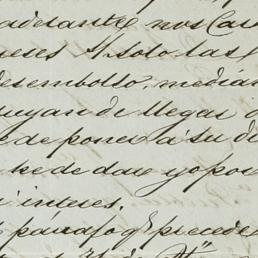 adelante nos Cau
neses y solo las
desembolso, median
huyan de llegar a
e de poner a su di
ke de dar yo por
i interes.
parrafo q. precede